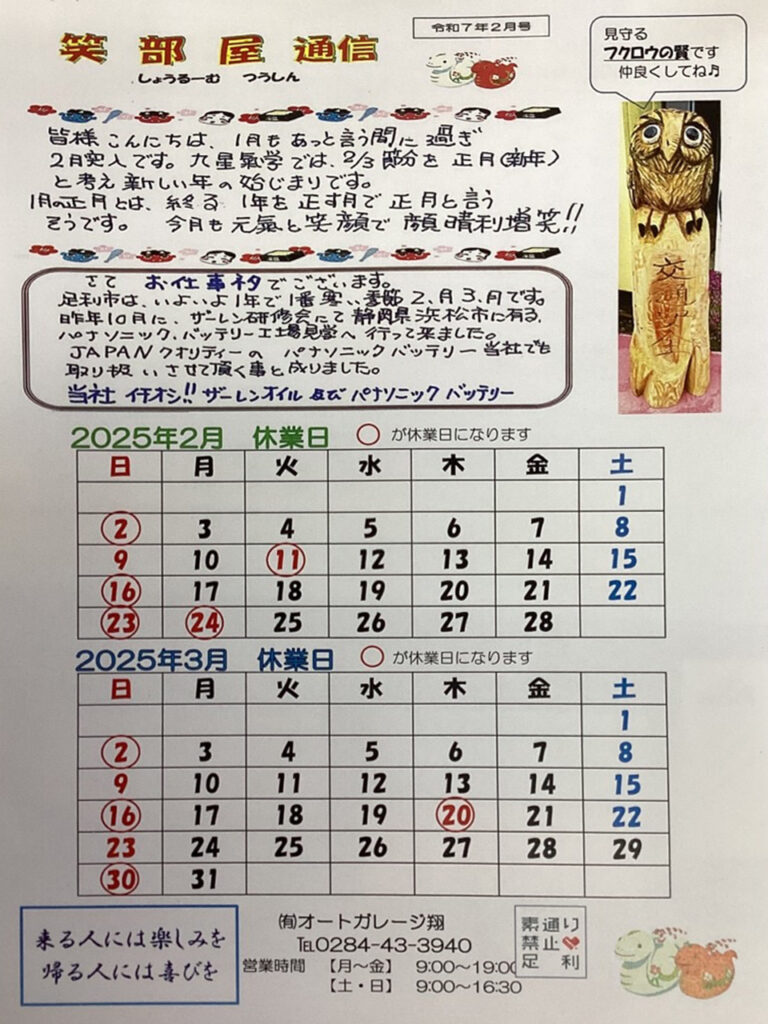 令和7年2月号
笑部屋通信
しょうるーむ つうしん
見守る
フクロウの賢です
仲良くしてね♬
皆様こんにちは、1月もあっと言う間に過ぎ
2月突入です。九星氣学では、2/3節分を正月(新年)
と考え新しい年の始じまりです。
1月の正月とは、終る 1年を正す月で正月と言う
そうです。 今月も元氣と笑顔で 顔晴利増笑!!
交通安全
さて お仕事ネタでございます。
足利市は、いよいよ1年で1番寒い季節2、月3、月です。
昨年10月に、ザーレン研修会にて静岡県浜松市に有る、
パナソニック、バッテリー工場見学へ行って来ました。
JAPANクオリティーの パナソニックバッテリー当社でも
取り扱いさせて頂く事と成りました。
当社イチオシ!! ザーレンオイル及びパナソニック バッテリー
2025年2月 休業日 ○が休業日になります
日 月 火 水 木 金 土
1
2 3 4 5 6 7 8
9 10 11 12 13 14 15
16 17 18 19 20 21 22
23 24 25 26 27 28
2025年3月 休業日 ○が休業日になります
日 月 火 水 木 金 土
1
2 3 4 5 6 7 8
9 10 11 12 13 14 15
16 17 18 19 20 21 22
23 24 25 26 27 28 29
30 31
来る人には楽しみを
帰る人には喜びを
㈲オートガレージ翔
℡0284-43-3940
営業時間 【月～金】 9:00～19:00
【土・日】 9:00～16:30
素通り
禁止
足利